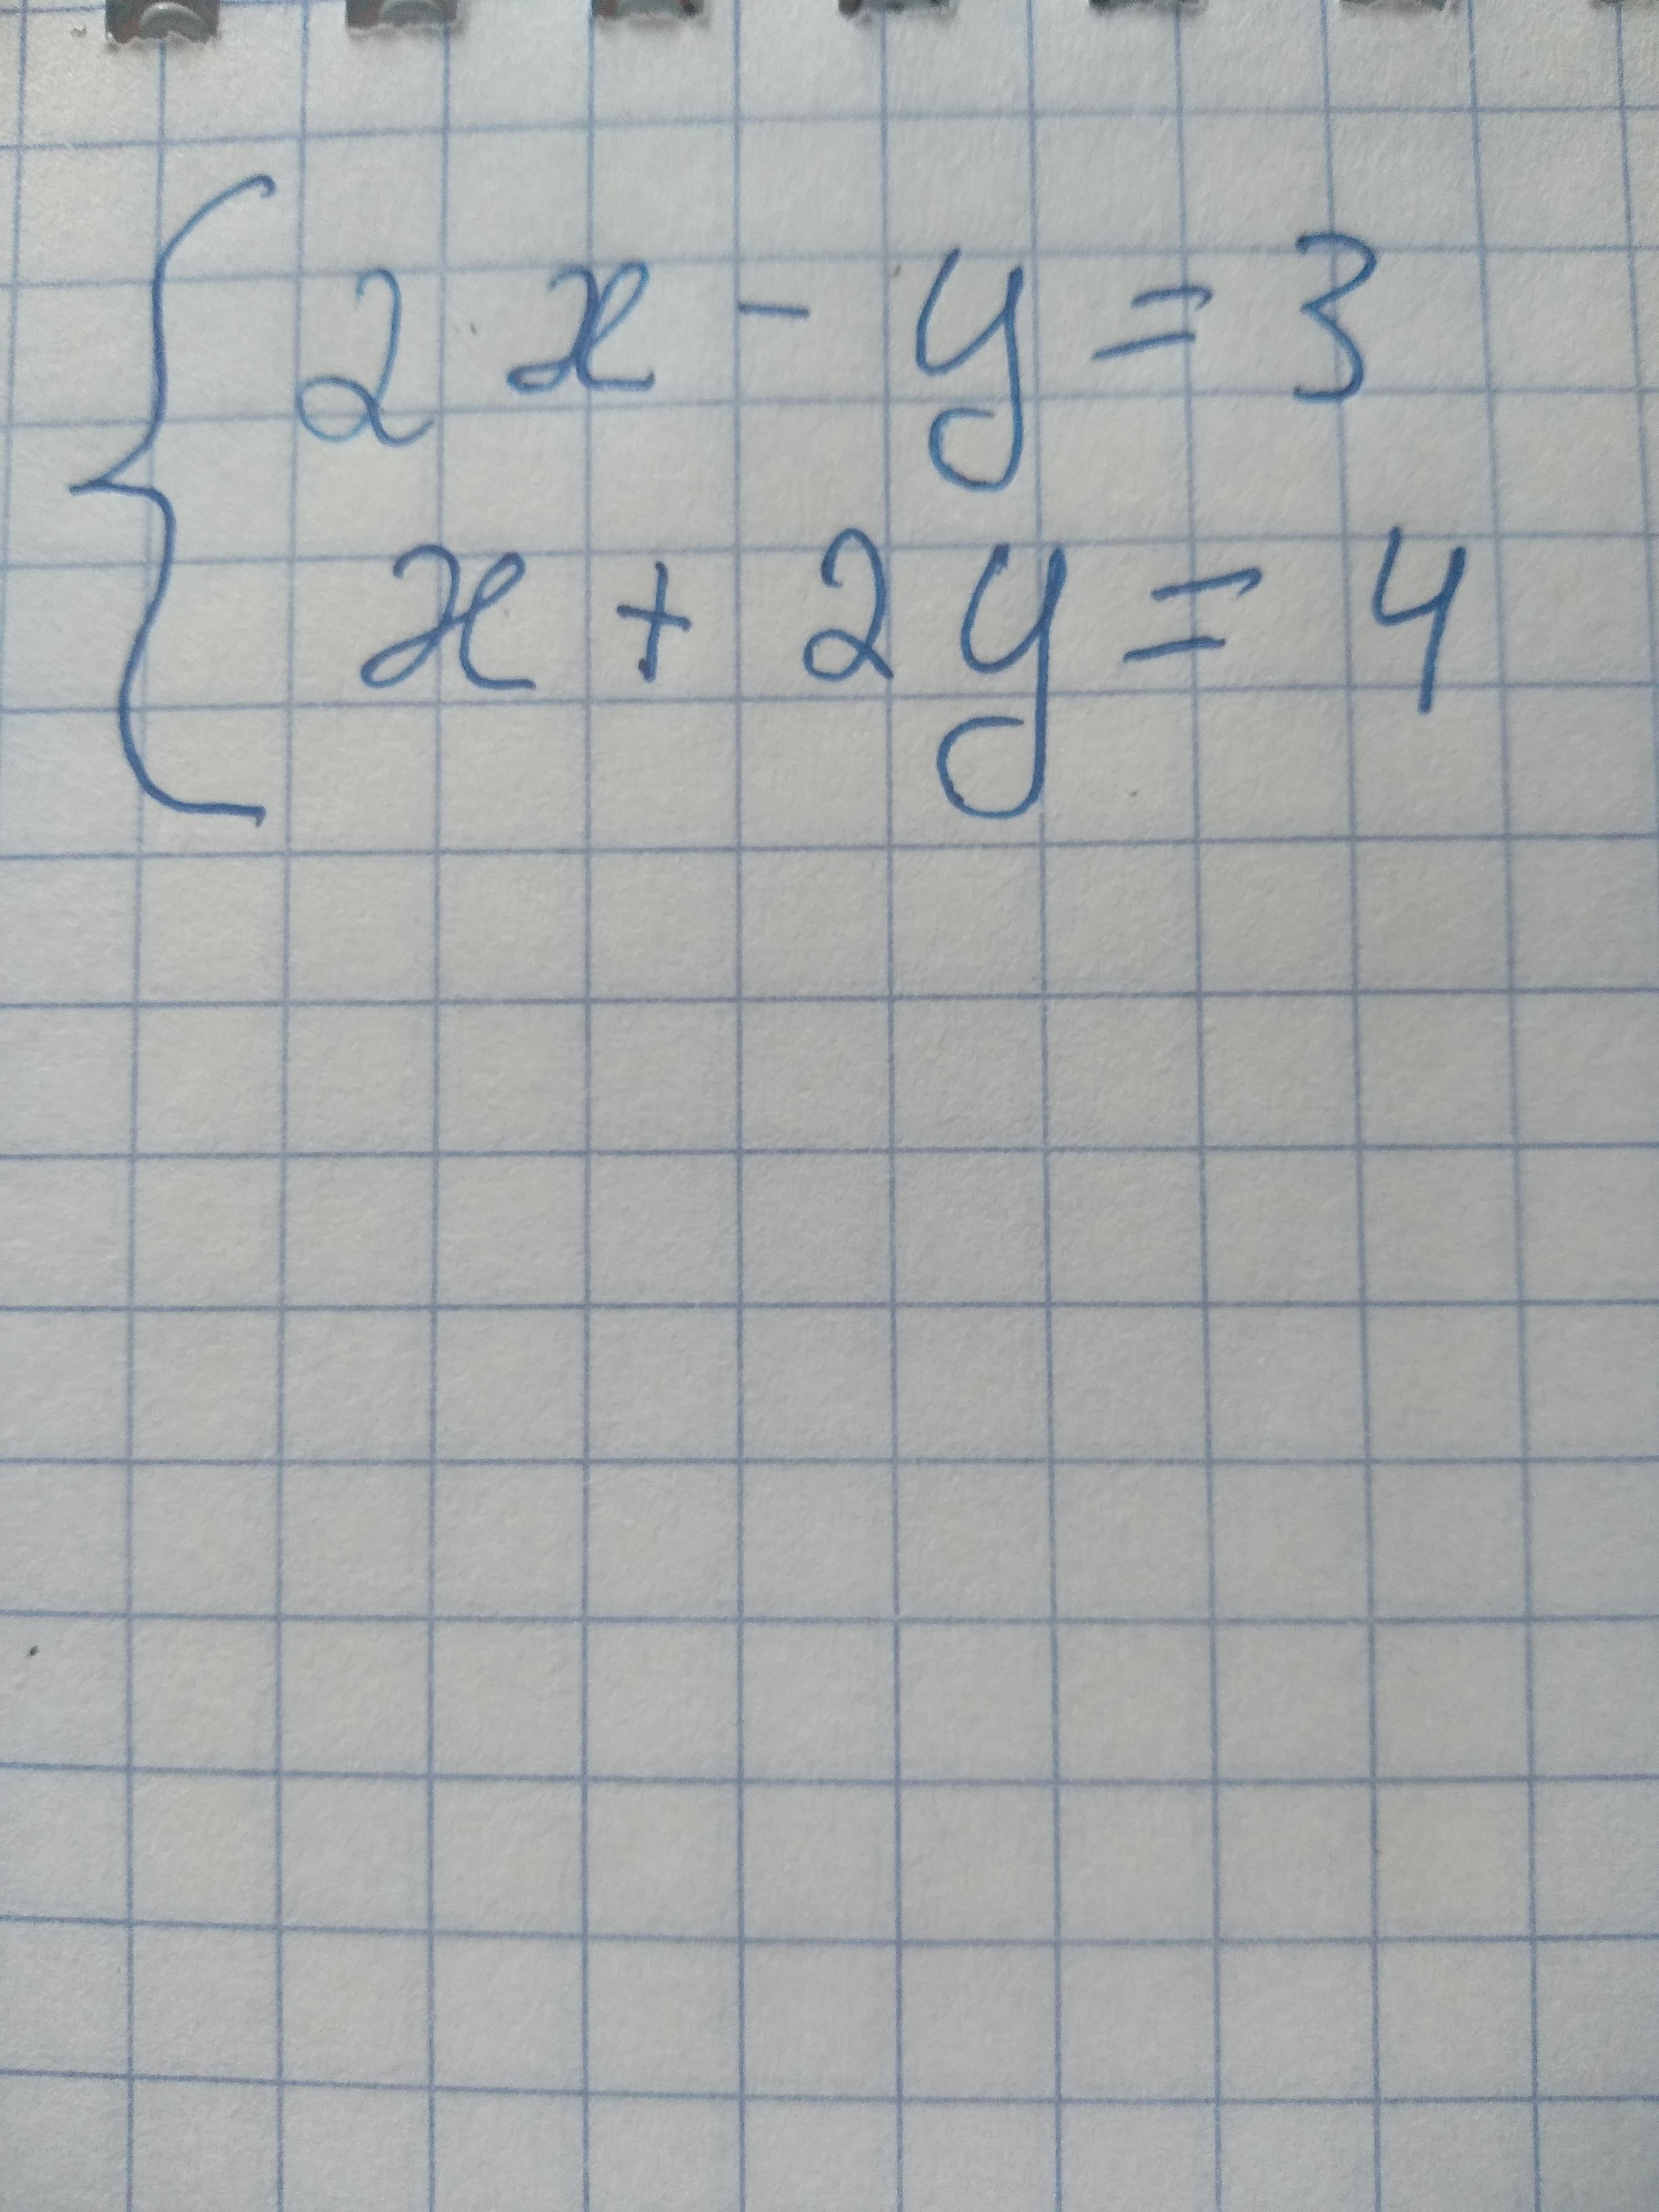 2x - y = 3
x + 2y = 4